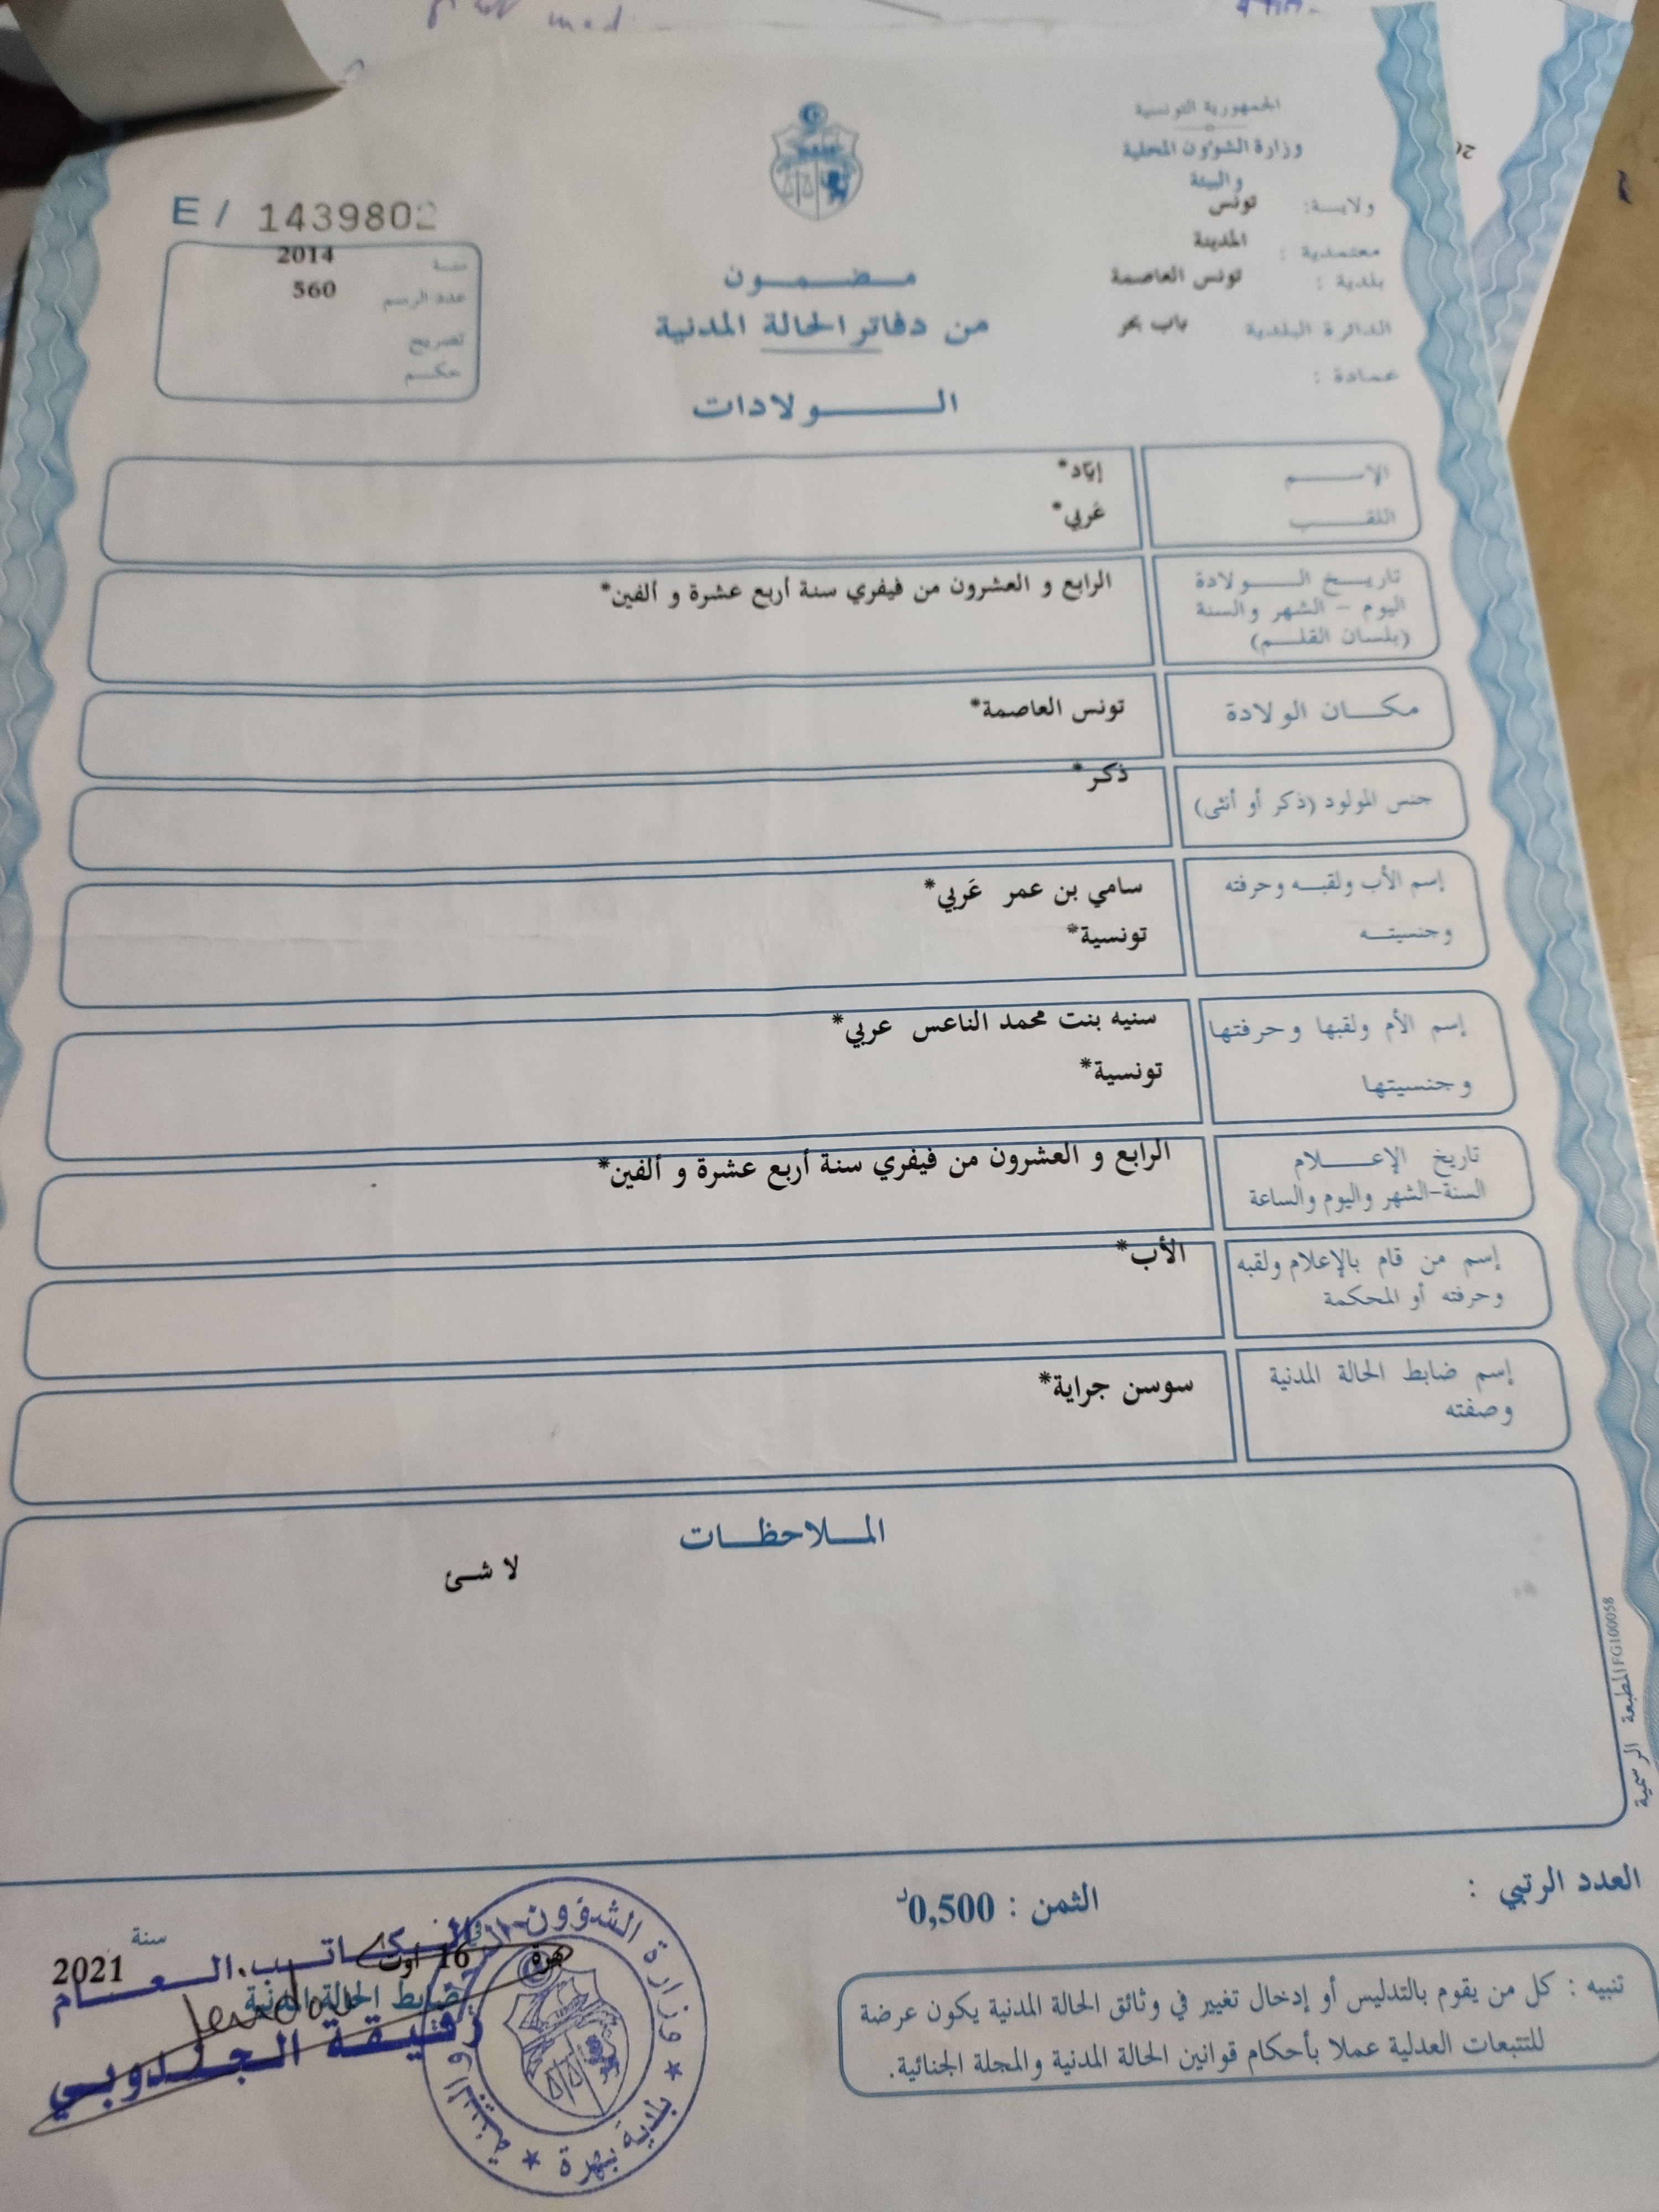 الجمهورية التونسية
وزارة الشؤون المحلية
والبيئة
ولاية: تونس
معتمدية : المدينة
بلدية : تونس العاصمة
الدائرة البلدية باب بحر
عمادة :
E / 1439802
سنة 2014
عدد الرسم 560
تصريح
حكم
مضمون
من دفاتر الحالة المدنية
الولادات
الإسم إيّاد*
اللقب عَربي*
تاريخ الولادة الرابع و العشرون من فيفري سنة أربع عشرة و ألفين*
اليوم - الشهر والسنة
(بلسان القلم)
مكان الولادة تونس العاصمة*
جنس المولود (ذكر أو أنثى) ذكر*
إسم الأب ولقبه وحرفته سامي بن عمر عَربي*
وجنسيته تونسية*
إسم الأم ولقبها وحرفتها سنيه بنت محمد الناعس عربي*
وجنسيتها تونسية*
تاريخ الإعلام الرابع و العشرون من فيفري سنة أربع عشرة و ألفين*
السنة-الشهر واليوم والساعة
إسم من قام بالإعلام ولقبه الأب*
وحرفته أو المحكمة
إسم ضابط الحالة المدنية سوسن جراية*
وصفته
الملاحظات
لا شئ
المطبعة الرسمية FG100058
العدد الرتبي :
الثمن : 0,500د
تنبيه : كل من يقوم بالتدليس أو إدخال تغيير في وثائق الحالة المدنية يكون عرضة
للتتبعات العدلية عملا بأحكام قوانين الحالة المدنية والمجلة الجنائية.
بهرة في 16 أوت سنة 2021
ضابط الحالة المدنية
الكاتب العام
رفيقة الجندوبي
وزارة الشؤون المحلية والبيئة
★ بلدية بهرة ★